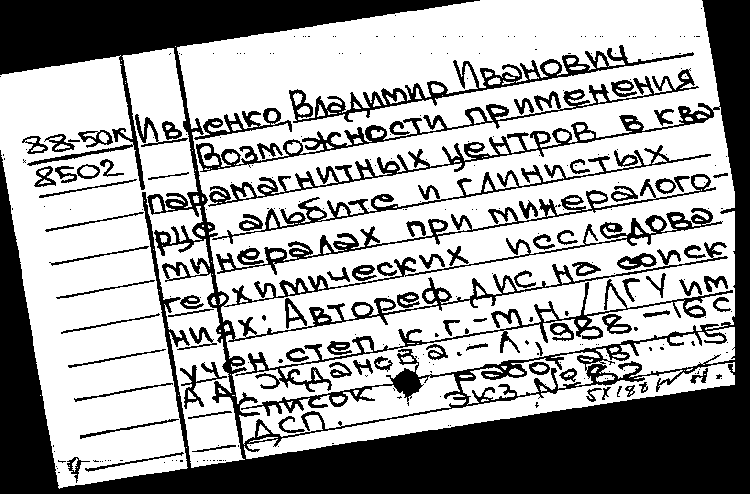 88-50К Ивченко, Владимир Иванович.
8502 Возможности применения
парамагнитных центров в ква-
рце, альбите и глинистых
минералах при минералого-
геохимических исследова-
ниях: Автореф. дис. на соиск
учен. степ. к. г.-м.н. / ЛГУ им
А.А. Жданова. - Л., 1988. - 16 с
Список работ авт.: с. 15-
ДСП. Экз. № 82